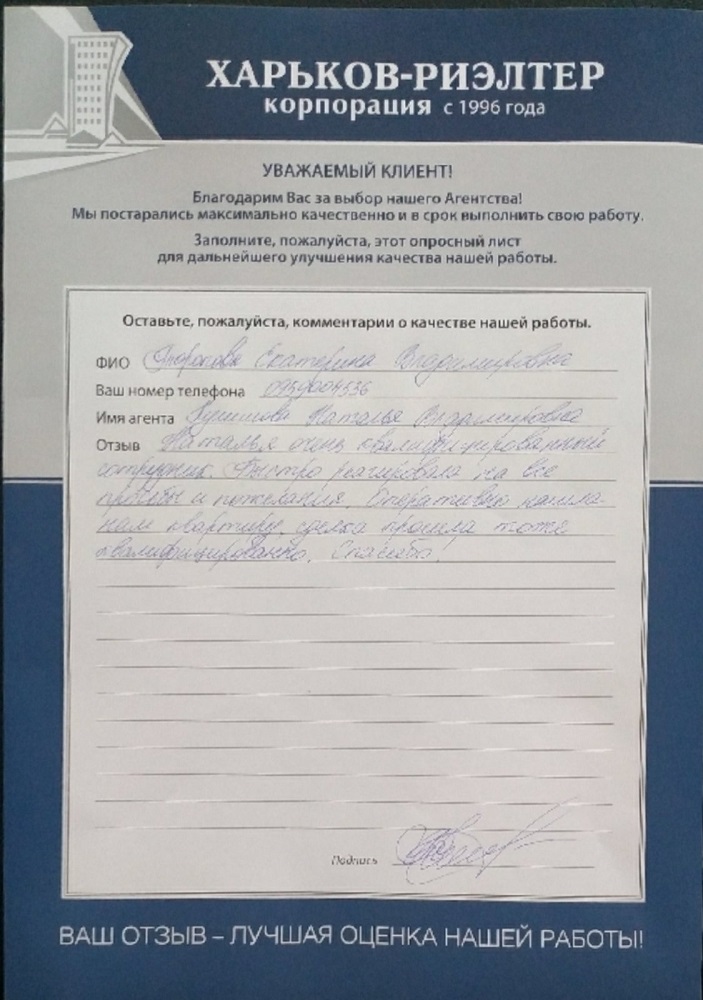 ХАРЬКОВ-РИЭЛТЕР
корпорация с 1996 года
УВАЖАЕМЫЙ КЛИЕНТ!
Благодарим Вас за выбор нашего Агентства!
Мы постарались максимально качественно и в срок выполнить свою работу.
Заполните, пожалуйста, этот опросный лист
для дальнейшего улучшения качества нашей работы.
Оставьте, пожалуйста, комментарии о качестве нашей работы.
ФИО Екатерина Владимировна
Ваш номер телефона
Имя агента Наталья Владимировна
Отзыв Наталья очень квалифицированный
сотрудник. Быстро реагировала на все
просьбы и пожелания. Оперативно нашла
нам квартиру, сделка прошла тоже
квалифицированно. Спасибо!
Подпись
ВАШ ОТЗЫВ – ЛУЧШАЯ ОЦЕНКА НАШЕЙ РАБОТЫ!